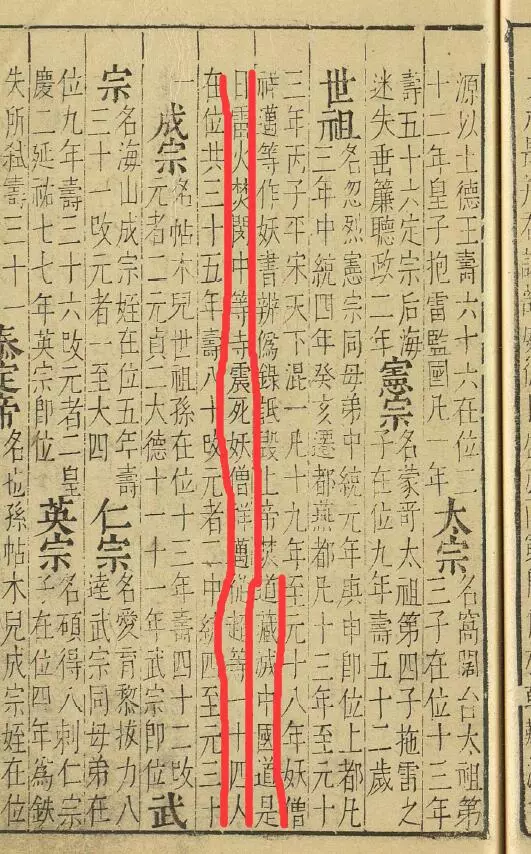 源以土德王壽六十六在位二
十二年皇子抱雷監國凡 年
太宗
名窩闊台太祖第
三子在位十三年
壽五十六定宗后海
迷失垂簾聽政二年
憲宗
名蒙哥太祖第四子拖雷之
子在位九年壽五十二歲
世祖
名忽烈憲宗同母弟中統元年庚申卽位上都凡
三年中統四年癸亥遷都燕都凡十三年至元十
三年丙子平宋天下混一凡十九年至元十八年妖僧
祥邁等作妖書辨僞錄詆毀上帝焚道藏滅中國道是
日雷火焚閩中等寺震死妖僧祥邁從超等一十四人
在位共三十五年壽八十改元者二中統四至元三十
一
成宗
名帖木兒世祖孫在位十二年壽四十二改
元者二元貞二大德十一十一年武宗卽位
武
宗
名海山成宗姪在位五年壽
三十一改元者一至大四
仁宗
名愛育黎拔力八
達武宗同母弟在
位九年壽三十六改元者二皇
慶二延祐七七年英宗卽位
英宗
名碩得八剌仁宗
子在位四年爲鉄
失所弒壽三十一
泰定帝
名也孫帖木兒成宗姪在位